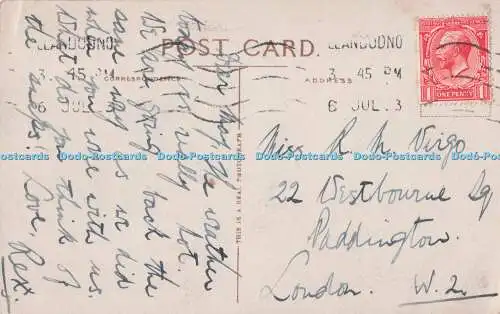 LLANDUDNO
3. 45 PM
6 JUL 3
POST CARD.
CORRESPONDENCE
ADDRESS
LLANDUDNO
3. 45 PM
6 JUL 3
ONE PENNY
THIS IS A REAL PHOTOGRAPH
Dear The weather
today is really hot.
We are going back the
same way as we did
when you were with us.
What do you think of
the angles? Love, Rex.
Miss R M Virgo
22 Westbourne Sq
Paddington.
London. W. 2.
Postcards Dodo Postcards Dodo Postcards Dodo Postcards Dodo Postcards